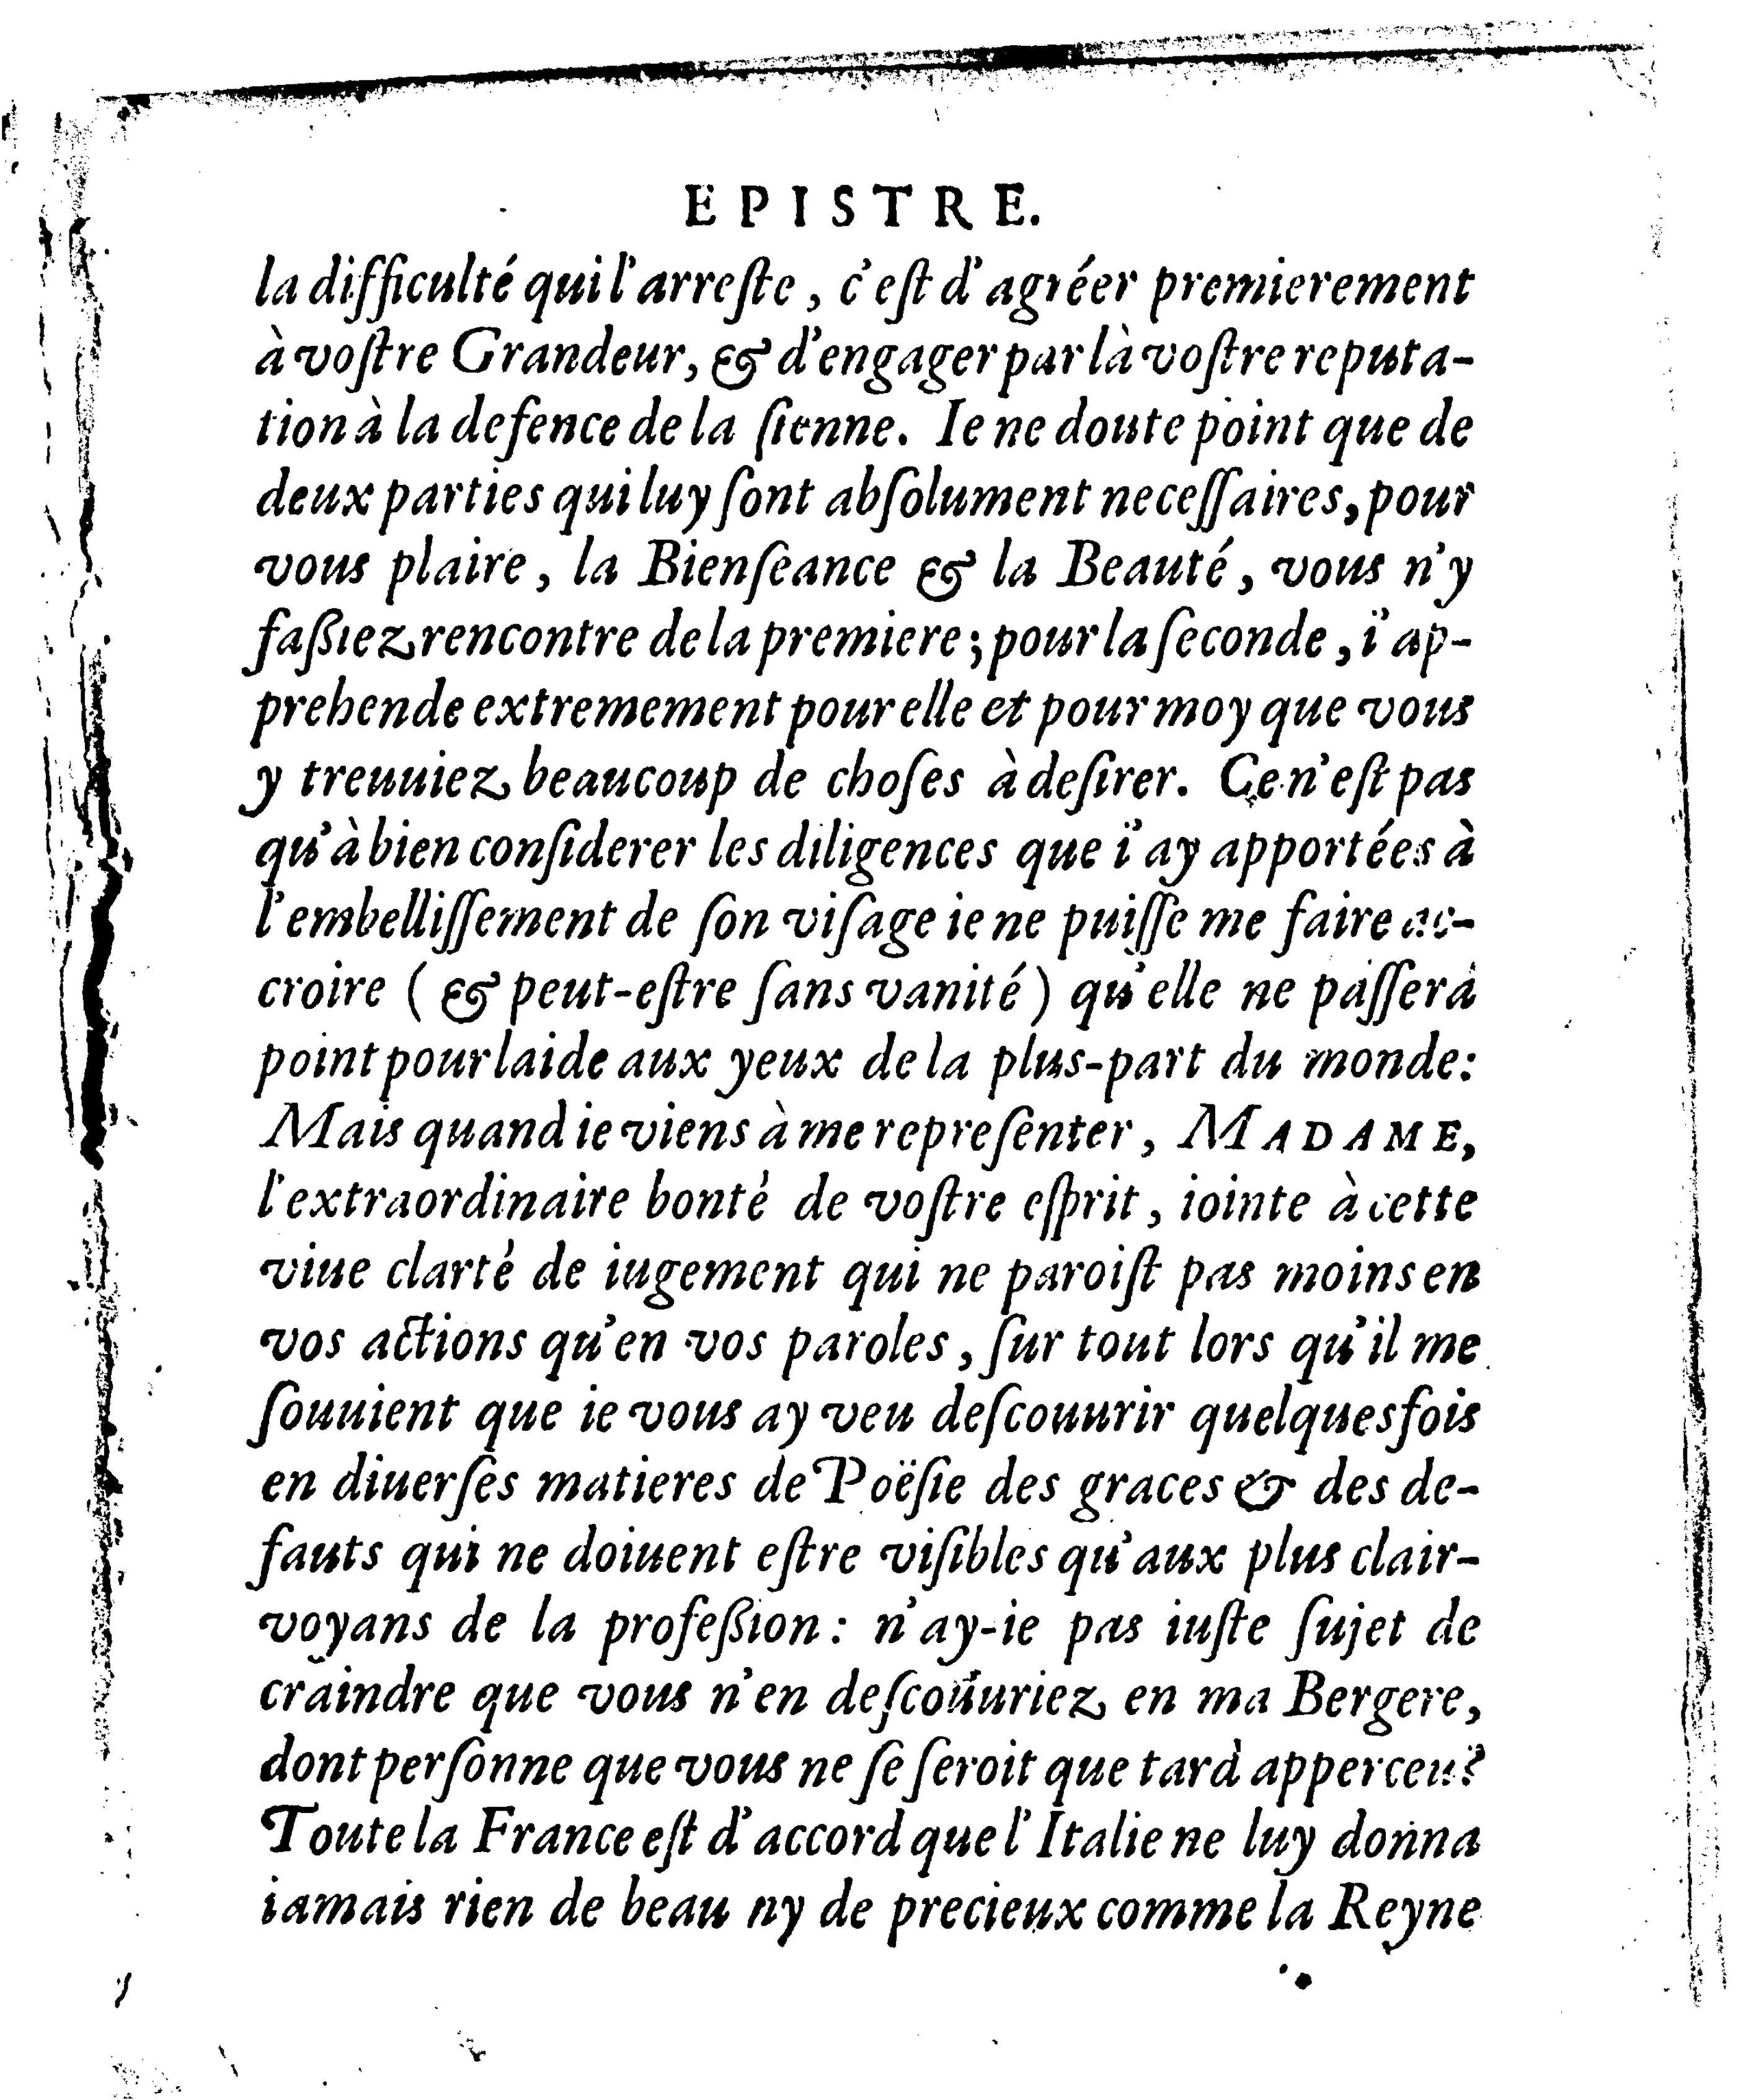 EPISTRE.
la difficulté qui l'arreſte, c'eſt d'agréer premierement
à voſtre Grandeur, & d'engager par là voſtre reputa-
tion à la defence de la ſienne. Ie ne doute point que de
deux parties qui luy ſont abſolument neceſſaires, pour
vous plaire, la Bienſeance & la Beauté, vous n'y
faßiez rencontre de la premiere; pour la ſeconde, i'ap-
prehende extremement pour elle et pour moy que vous
y treuuiez beaucoup de choſes à deſirer. Ce n'eſt pas
qu'à bien conſiderer les diligences que i'ay apportées à
l'embelliſſement de ſon viſage ie ne puiſſe me faire ac-
croire (& peut-eſtre ſans vanité) qu'elle ne paſſera
point pour laide aux yeux de la plus-part du monde:
Mais quand ie viens à me repreſenter, MADAME,
l'extraordinaire bonté de voſtre eſprit, iointe à cette
viue clarté de iugement qui ne paroiſt pas moins en
vos actions qu'en vos paroles, ſur tout lors qu'il me
ſouuient que ie vous ay veu deſcouurir quelquesfois
en diuerſes matieres de Poëſie des graces & des de-
fauts qui ne doiuent eſtre viſibles qu'aux plus clair-
voyans de la profeßion: n'ay-ie pas iuſte ſujet de
craindre que vous n'en deſcouuriez en ma Bergere,
dont perſonne que vous ne ſe ſeroit que tard apperceu?
Toute la France eſt d'accord que l'Italie ne luy donna
iamais rien de beau ny de precieux comme la Reyne